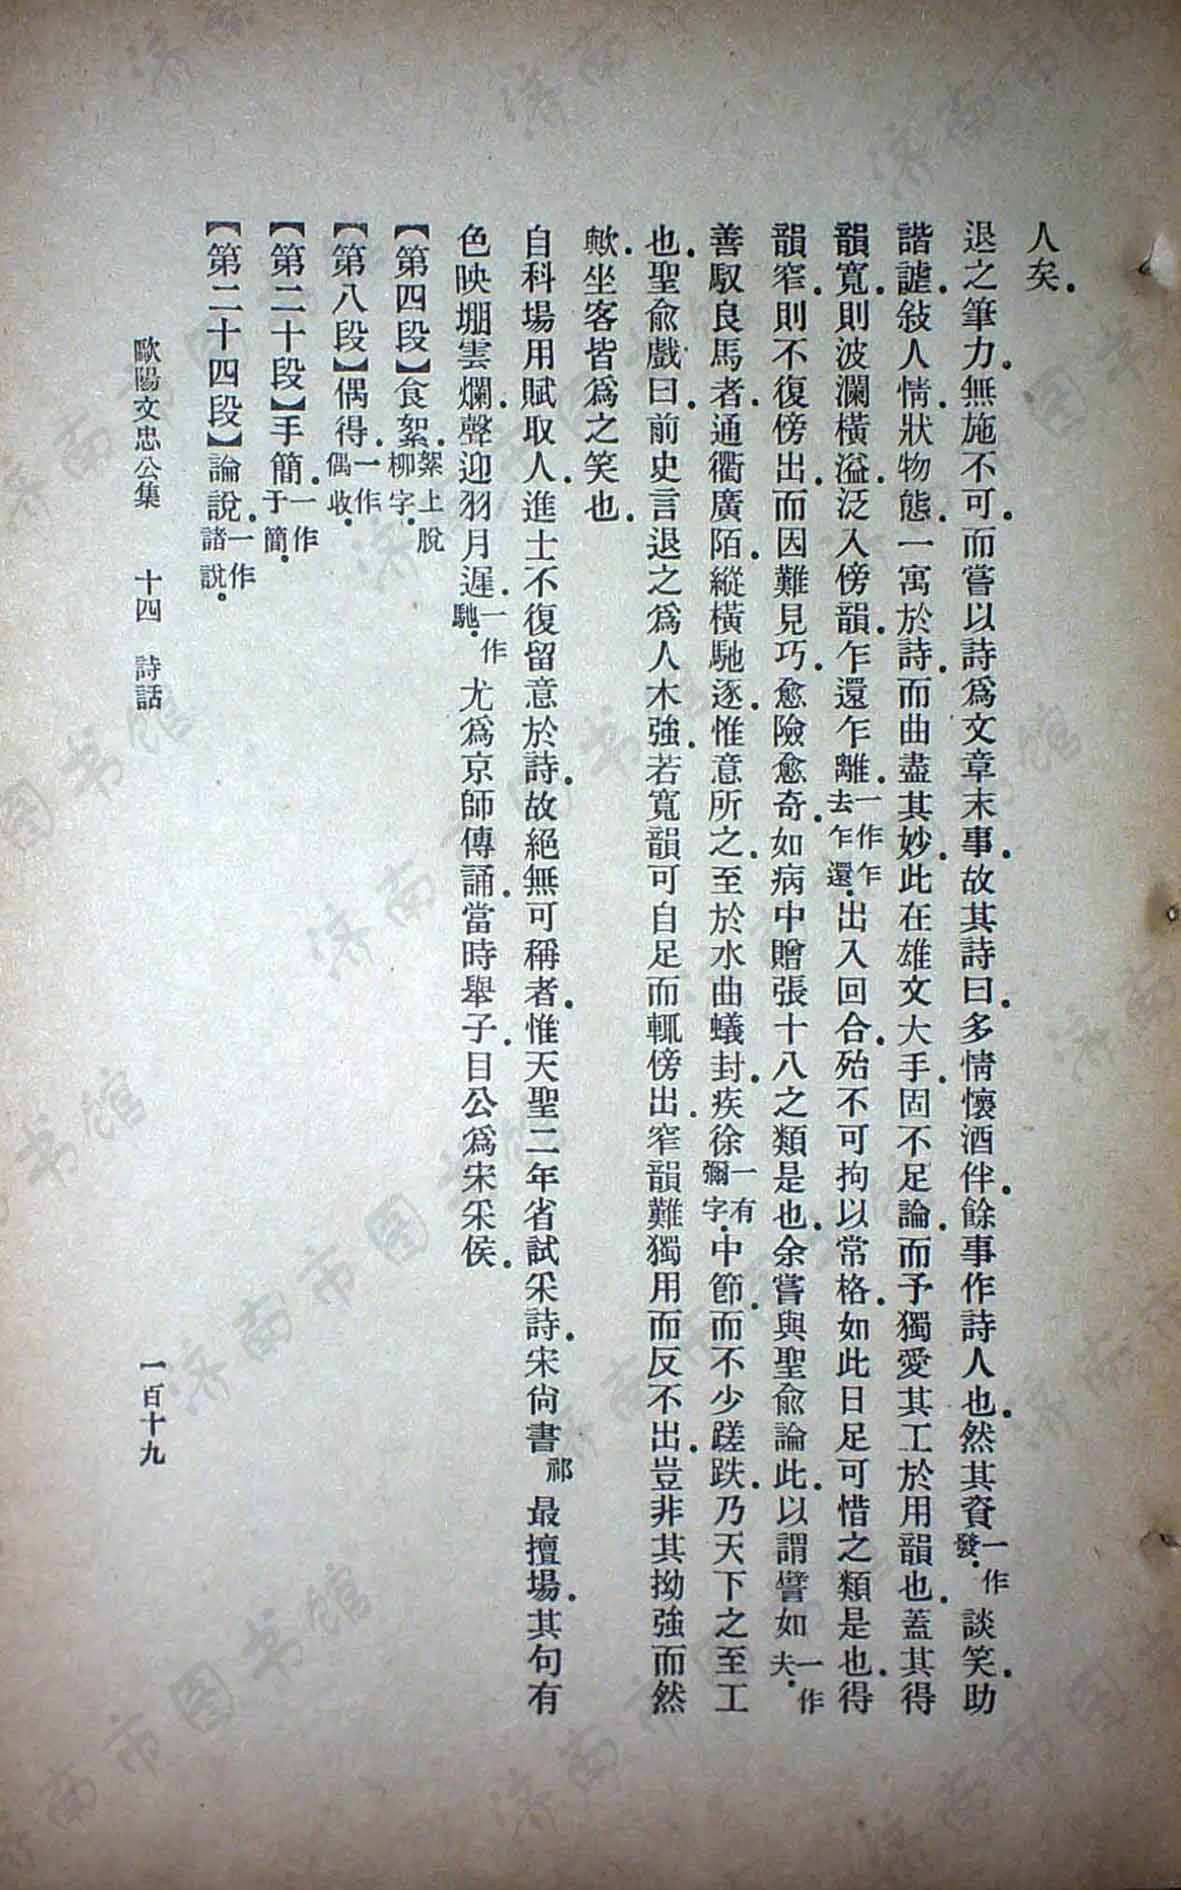 人矣。
退之筆力。無施不可。而嘗以詩爲文章末事。故其詩曰。多情懷酒伴。餘事作詩人也。然其資一作發。談笑。助
諧謔。敍人情。狀物態。一寓於詩。而曲盡其妙。此在雄文大手。固不足論。而予獨愛其工於用韻也。蓋其得
韻寬。則波瀾橫溢。泛入傍韻。乍還乍離。一作乍去乍還。出入回合。殆不可拘以常格。如此日足可惜之類是也。得
韻窄。則不復傍出。而因難見巧。愈險愈奇。如病中贈張十八之類是也。余嘗與聖俞論此。以謂譬如一作夫。
善馭良馬者。通衢廣陌。縱橫馳逐。惟意所之。至於水曲蟻封。疾徐一有彌字。中節。而不少蹉跌。乃天下之至工
也。聖俞戲曰。前史言退之爲人木強。若寬韻可自足而輒傍出。窄韻難獨用而反不出。豈非其拗強而然
歟。坐客皆爲之笑也。
自科場用賦取人。進士不復留意於詩。故絕無可稱者。惟天聖二年省試采詩。宋尙書祁最擅場。其句有
色映堋雲爛。聲迎羽月遲。一作馳。尤爲京師傳誦。當時舉子。目公爲宋采侯。
【第四段】食絮。絮上脫柳字。
【第八段】偶得。一作偶收。
【第二十段】手簡。一作于簡。
【第二十四段】論說。一作諸說。
歐陽文忠公集 十四 詩話 一百十九
济南市图书馆